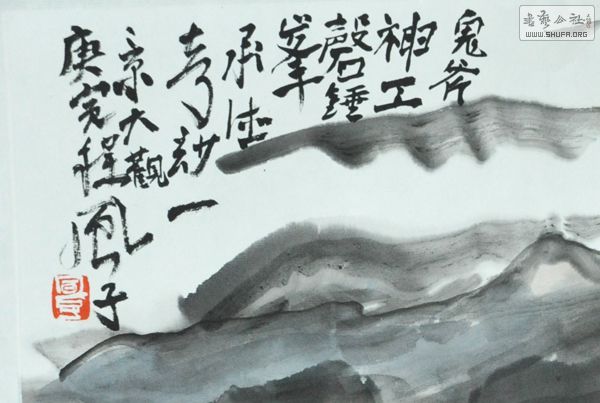 鬼斧
神工
磬錘
峯
承德
奇妙一
景大觀
庚寅程風子
書藝公社
WWW.SHUFA.ORG